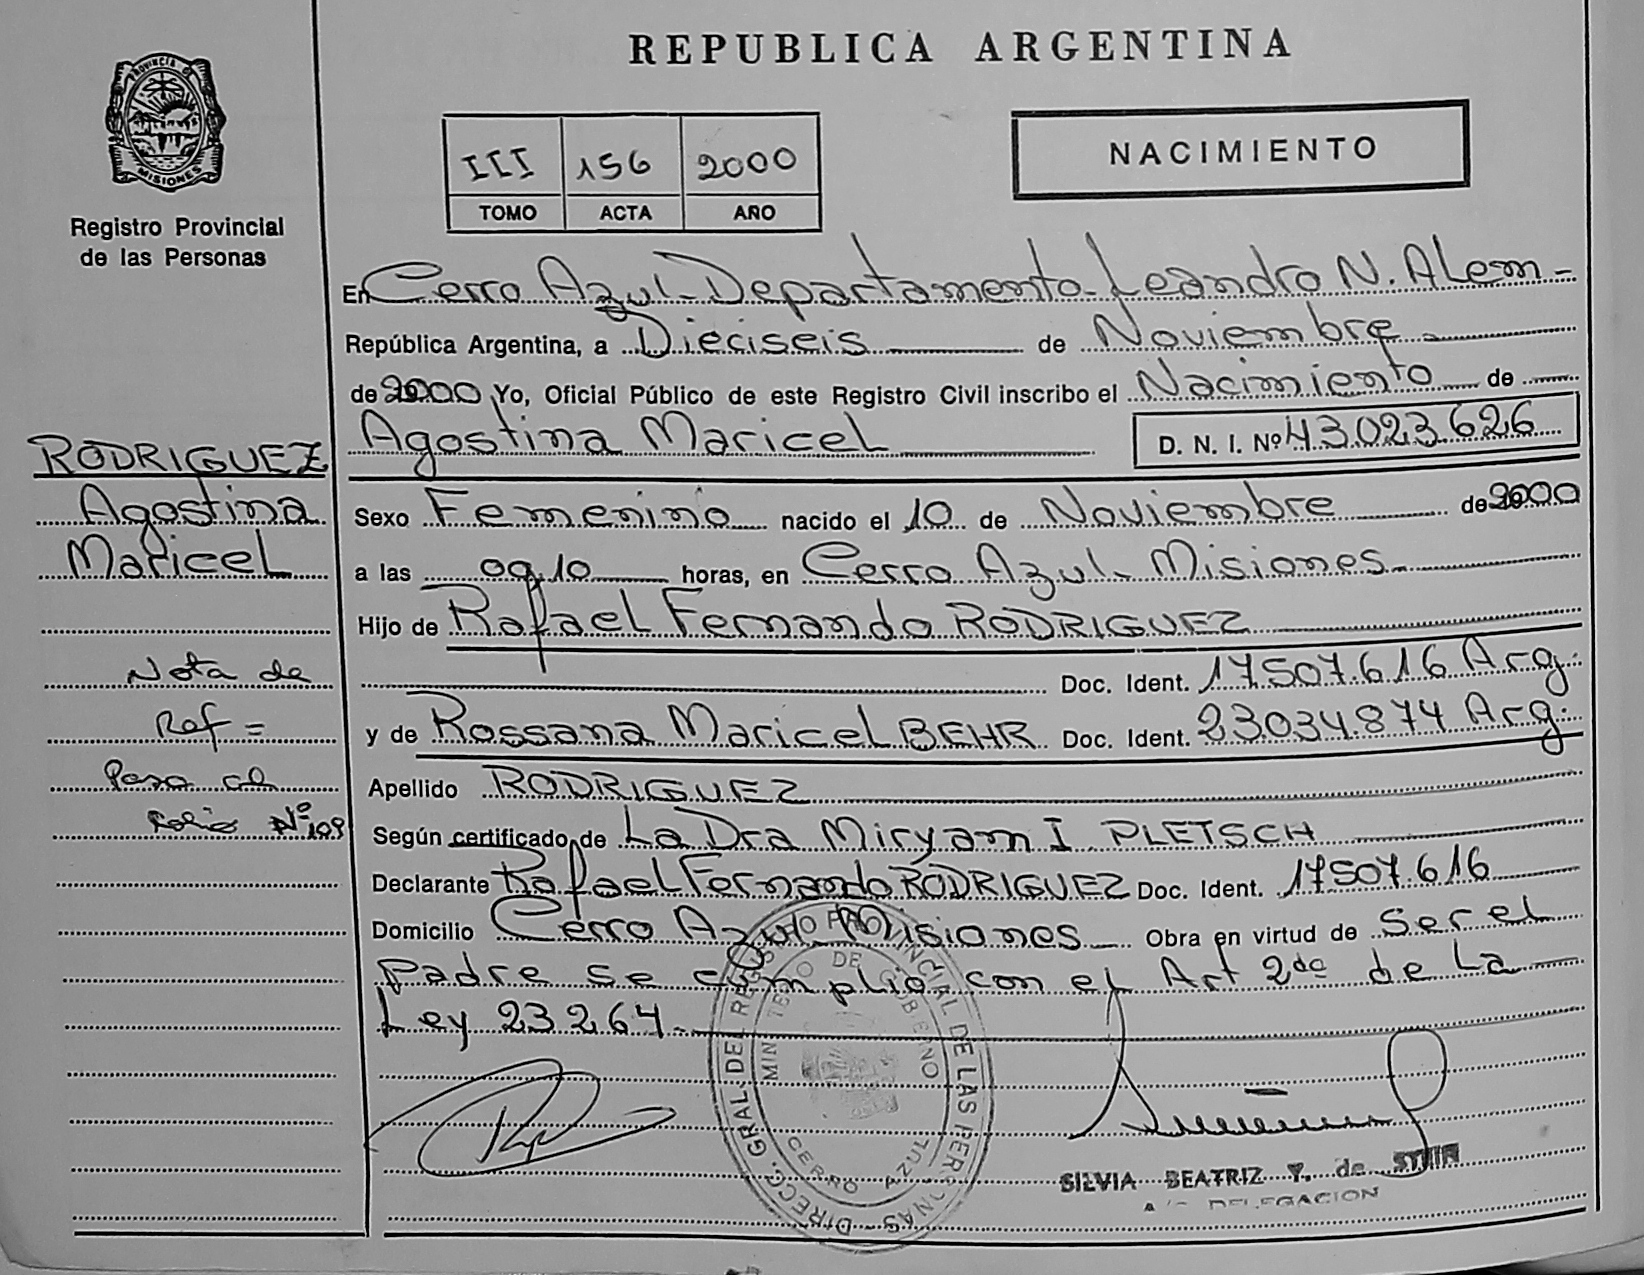 REPUBLICA ARGENTINA
PROVINCIA DE
MISIONES
Registro Provincial
de las Personas
III 156 2000
TOMO ACTA AÑO
NACIMIENTO
En Cerro Azul - Departamento - Leandro N. Alem -
República Argentina, a Dieciseis de Noviembre
de 2000 Yo, Oficial Público de este Registro Civil inscribo el Nacimiento de
Agostina Maricel D. N. I. Nº 43.023.626
Sexo Femenino nacido el 10 de Noviembre de 2000
a las 09.10 horas, en Cerro Azul - Misiones
Hijo de Rafael Fernando RODRIGUEZ
Doc. Ident. 17507.616 Arg.
y de Rossana Maricel BEHR Doc. Ident. 23034.874 Arg.
Apellido RODRIGUEZ
Según certificado de La Dra Miryam I PLETSCH
Declarante Rafael Fernando RODRIGUEZ Doc. Ident. 17507.616
Domicilio Cerro Azul Misiones Obra en virtud de Ser el
padre se cumplio con el Art 2do de La
Ley 23.264.
RODRIGUEZ
Agostina
Maricel
Nota de
Ref =
Pasa al
folio Nº 109
DIRECC. GRAL. DEL REGISTRO PROVINCIAL DE LAS PERSONAS
MINISTERIO DE GOBIERNO
CERRO AZUL
SILVIA BEATRIZ Y. de
DELEGACION